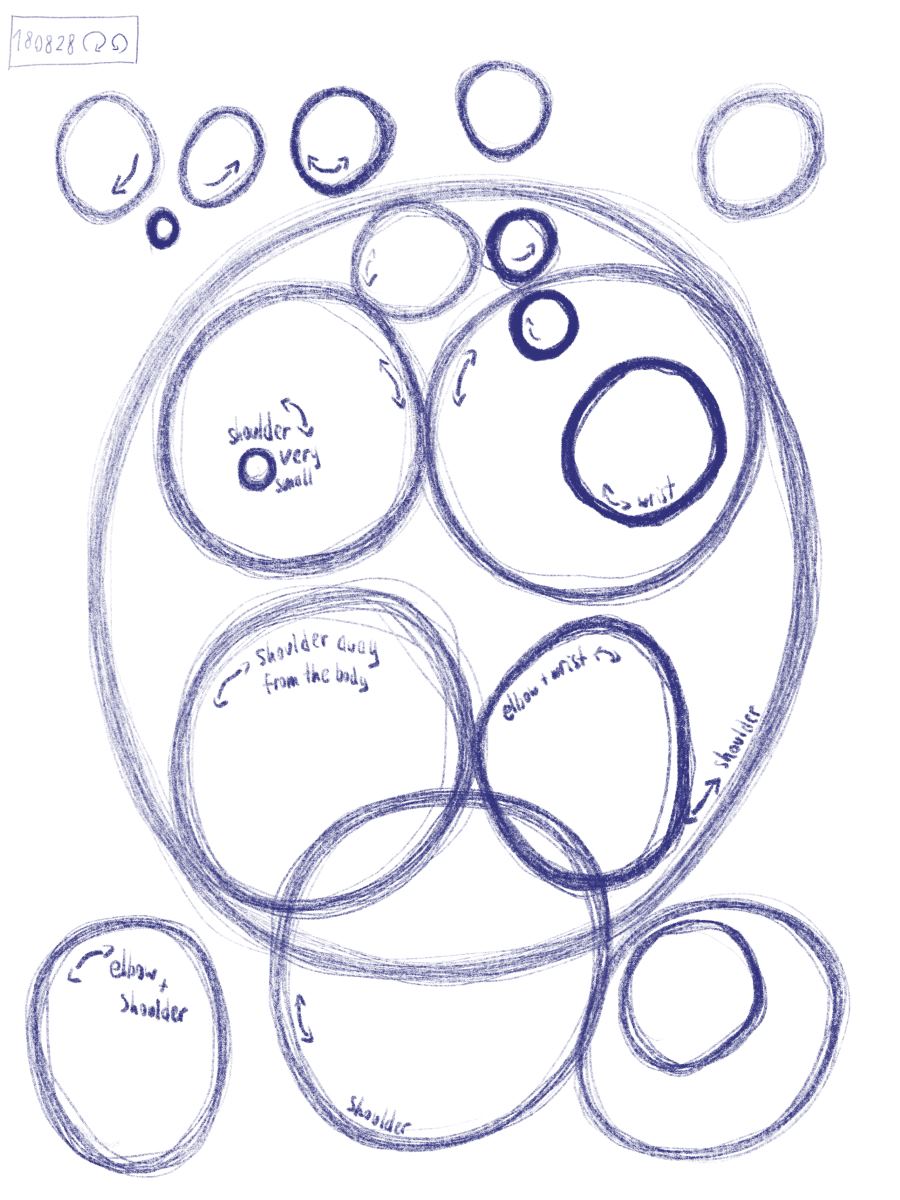 180828
shoulder
very
small
wrist
shoulder away
from the body
elbow + wrist
shoulder
elbow +
shoulder
shoulder